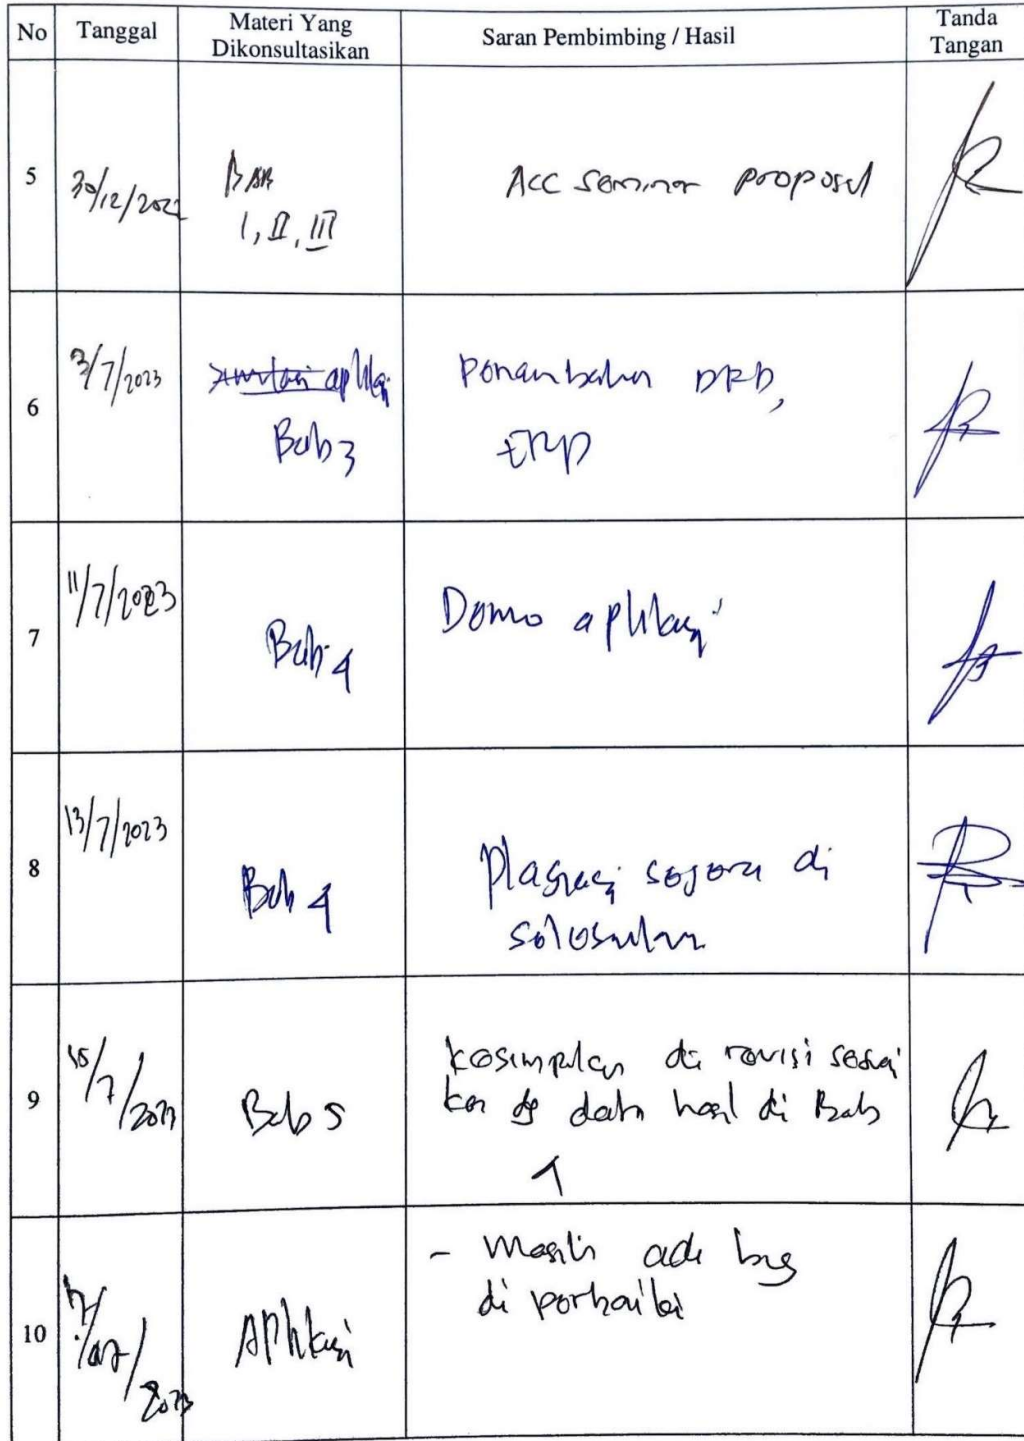 No Tanggal Materi Yang Dikonsultasikan Saran Pembimbing / Hasil Tanda Tangan
5 30/12/2022 BAB Acc seminar proposal
I, II, III
6 3/7/2023 aplikasi Penambahan DFD,
Bab 3 ERD
7 11/7/2023 Bab 4 Demo aplikasi
8 13/7/2023 Bab 4 Plagiasi segera di
selesaikan
9 15/7/2023 Bab 5 kesimpulan di revisi sesuai
kan dg data hasil di Bab
4
10 /07/2023 Aplikasi - Masih ada bug
di perbaiki